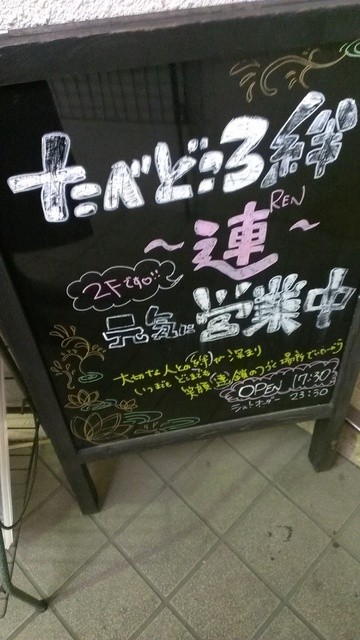 たべどころ絆
REN
～連～
2Fです
元気に営業中
大切な人との(絆)が深まり
いつまでもどこまでも
笑顔(連)鎖のつづく場所でありたい
OPEN 17:30
ラストオーダー 23:30